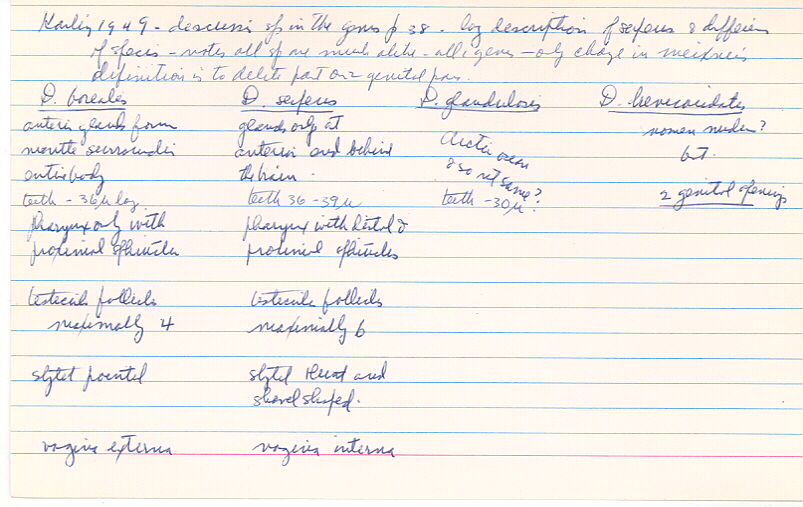 Karling 1949 - discussion sp in the genus p 38 - long description of seiferus & differences
of species - notes all sp are much alike - all 1 genus - only change in Meixner's
definition is to delete part on 2 genital pores.
D. borealis D. seiferus D. glandulosis D. brevicuspidatus
anterior glands form glands only at nomen nudum?
mantle surrounding anterior and behind Arctic ocean but
entire body the brain. & so not same?
teeth - 36µ long teeth 36 - 39µ teeth - 30µ. 2 genital openings
pharynx only with pharynx with distal &
proximal sphincter proximal sphincters
testicule follicls testicule follicls
maximally 4 maximially 6
stylet pointed stylet blunt and
shovel shaped.
vagina externa vagina interna